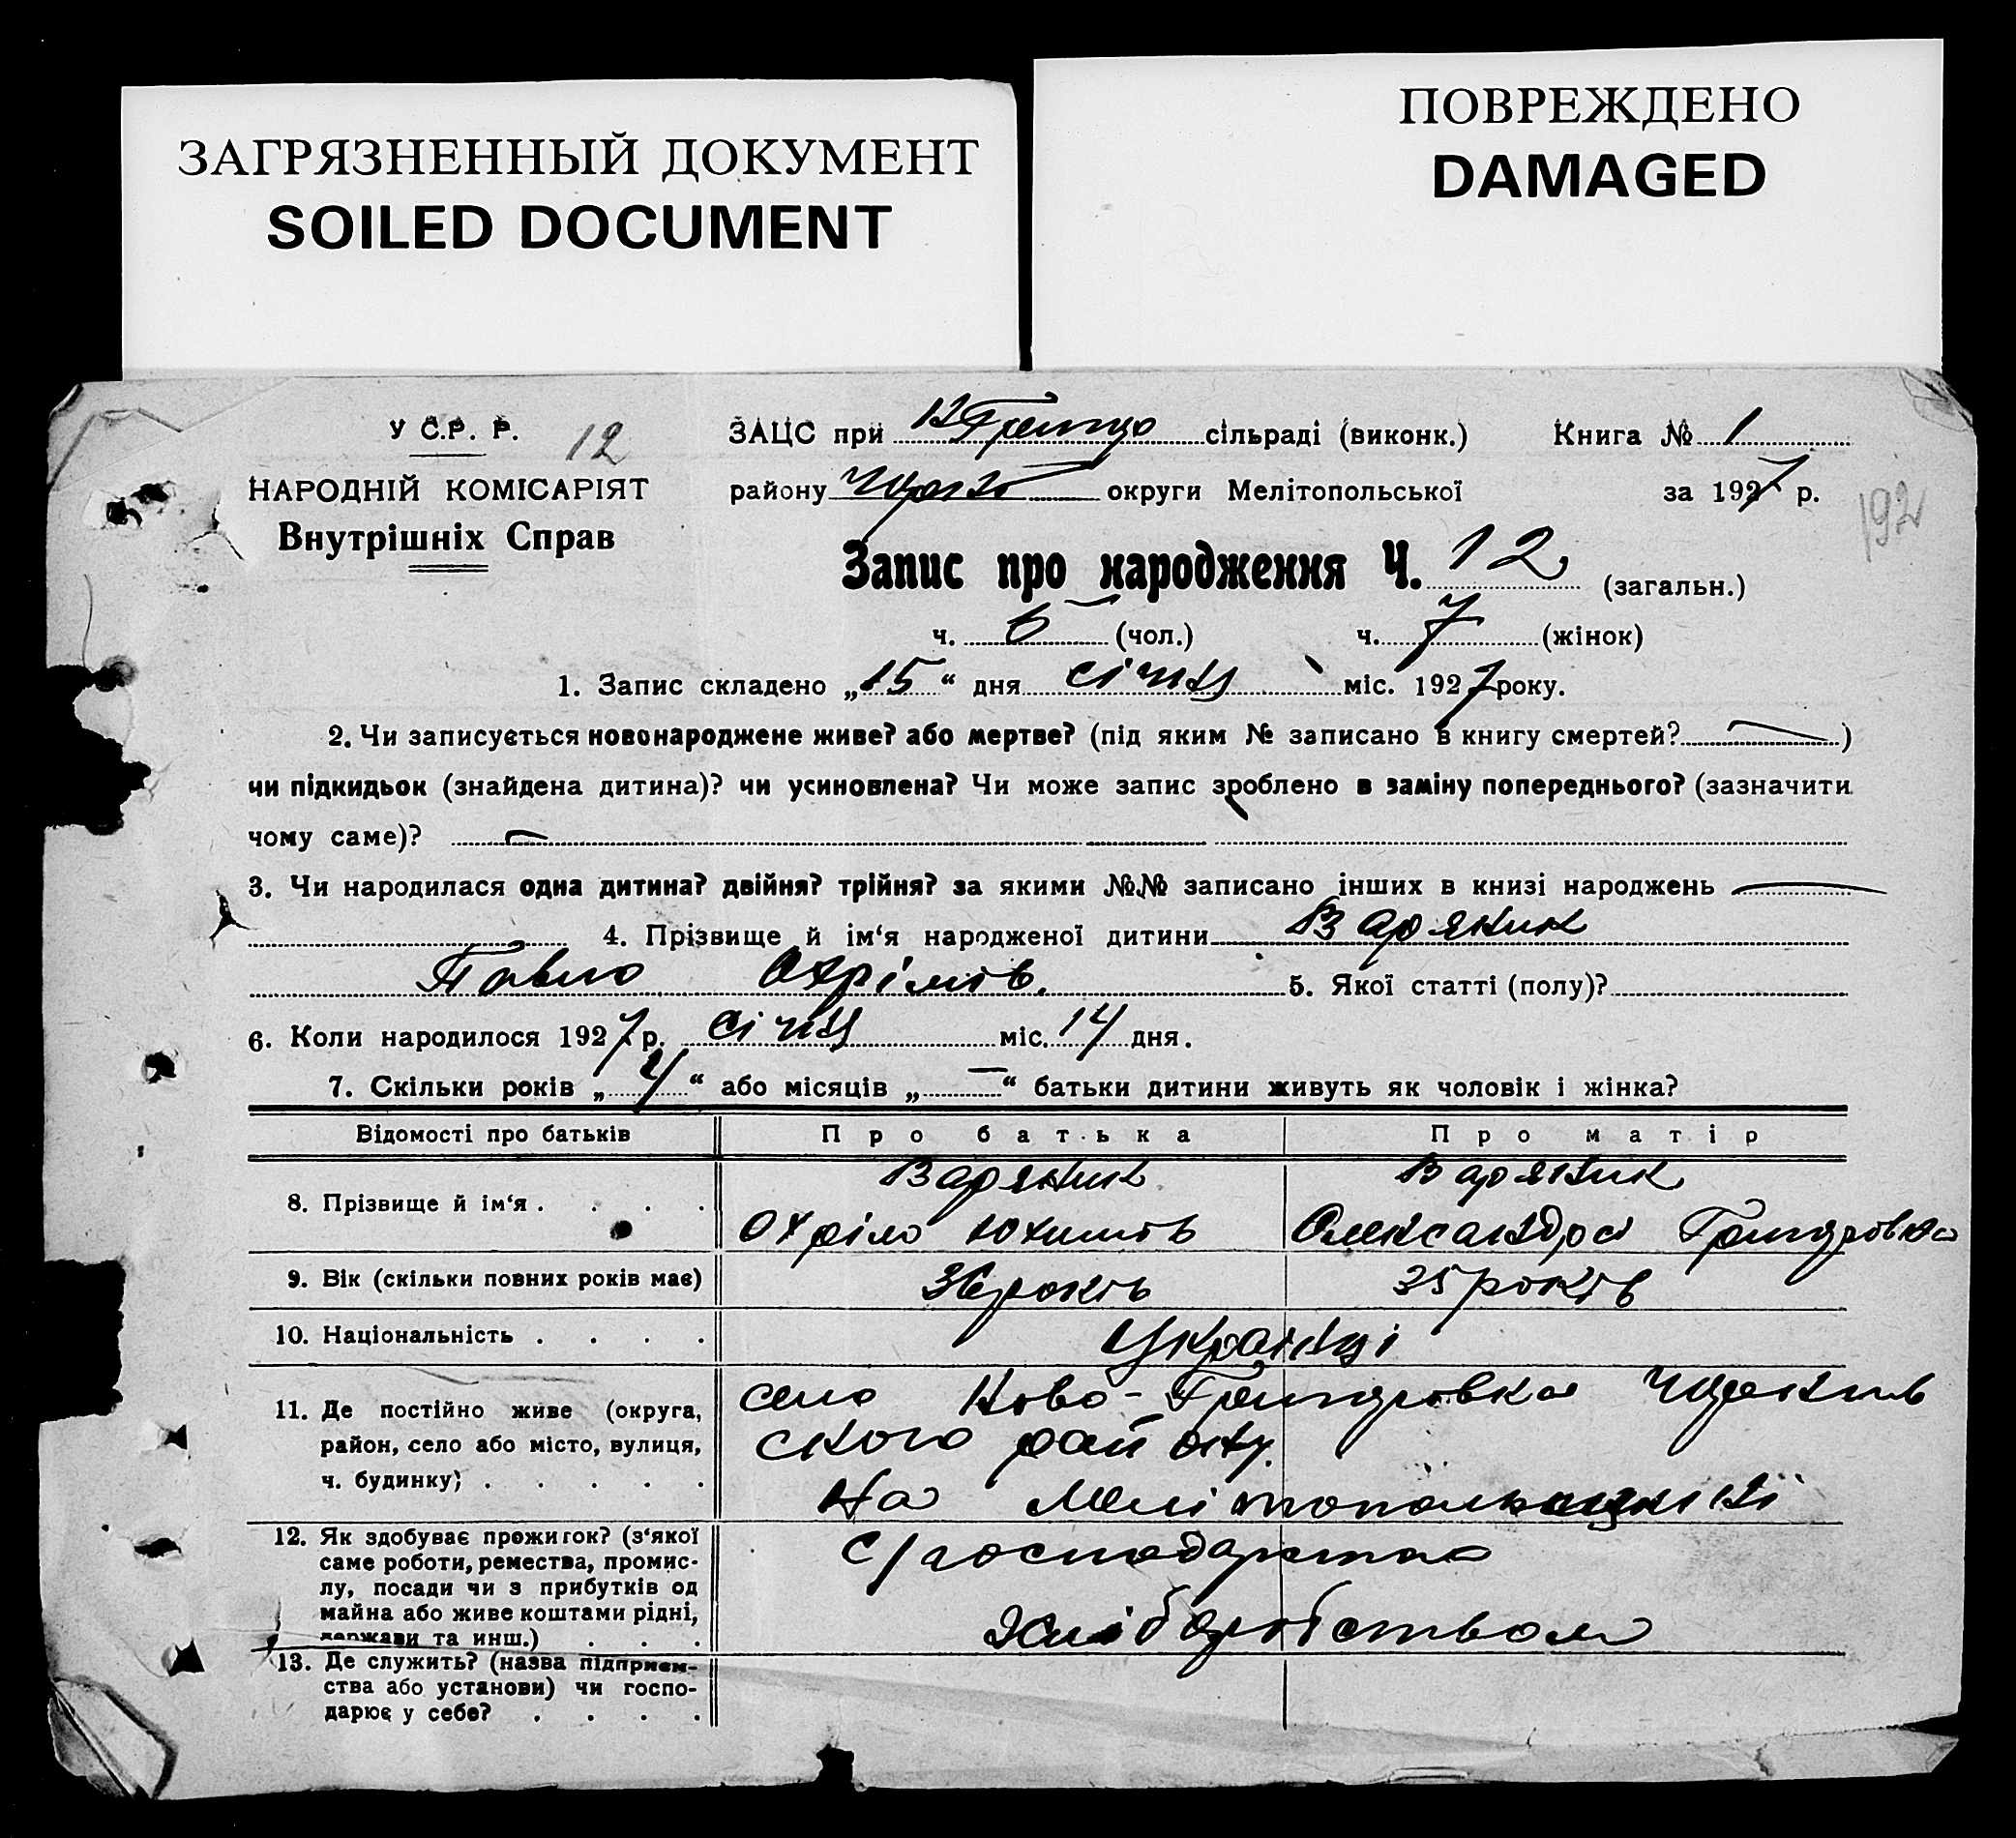 ЗАГРЯЗНЕННЫЙ ДОКУМЕНТ
SOILED DOCUMENT
ПОВРЕЖДЕНО
DAMAGED
У С.Р. Р. 12
НАРОДНІЙ КОМІСАРІЯТ
Внутрішніх Справ
ЗАЦС при сільраді (виконк.) Книга № 1
району округи Мелітопольської за 1927 р.
192
Запис про народження Ч. 12 (загальн.)
ч. 6 (чол.) ч. 7 (жінок)
1. Запис складено „15“ дня січня міс. 1927 року.
2. Чи записується новонароджене живе? або мертве? (під яким № записано в книгу смертей? )
чи підкидьок (знайдена дитина)? чи усиновлена? Чи може запис зроблено в заміну попереднього? (зазначити
чому саме)?
3. Чи народилася одна дитина? двійня? трійня? за якими №№ записано інших в книзі народжень
4. Прізвище й ім‘я народженої дитини Варяник
Павло Охрімів. 5. Якої статті (полу)?
6. Коли народилося 1927 р. січня міс. 14 дня.
7. Скільки років „4“ або місяців „—“ батьки дитини живуть як чоловік і жінка?
Відомості про батьків Про батька Про матір
8. Прізвище й ім‘я . . . .
Варяник
Охрім Юхимів
Варяник
Олександра Григоровна
9. Вік (скільки повних років має) 36 років 35 років
10. Національність . . . . Українці
11. Де постійно живе (округа,
район, село або місто, вулиця,
ч. будинку; . . . . .
село Ново-Григоровка
ского району.
на
12. Як здобуває прожиток? (з‘якої
саме роботи, ремества, промис-
лу, посади чи з прибутків од
майна або живе коштами рідні,
держави та инш.) . . .
с/господарства
Хліборобством
13. Де служить? (назва підприєм-
ства або установи) чи госпо-
дарює у себе? . . . .